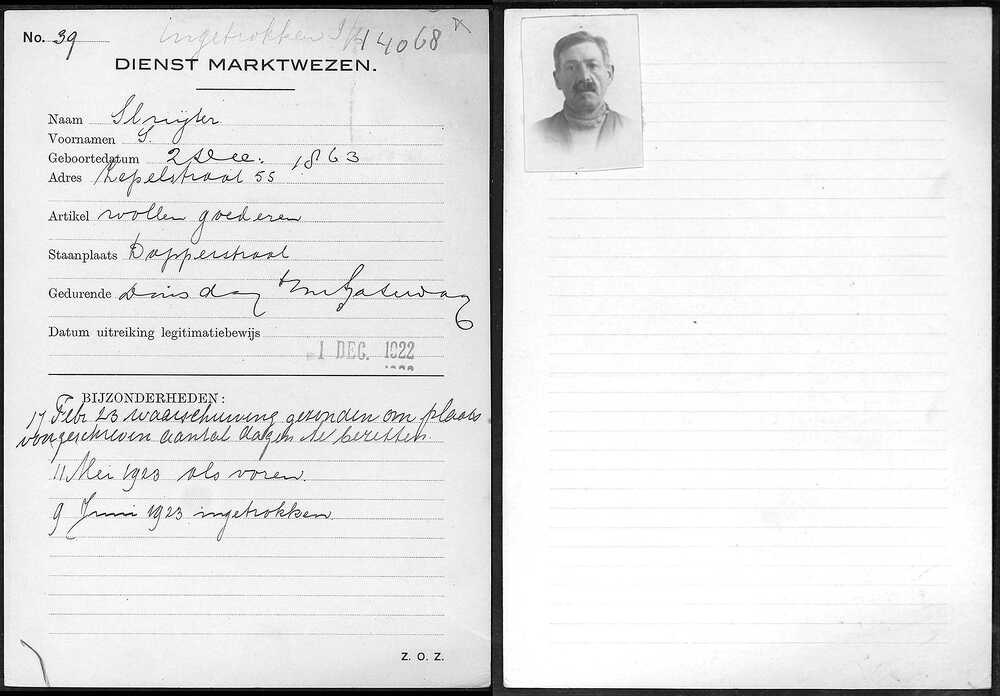 No. 39 Ingetrokken 14068
DIENST MARKTWEZEN.
Naam Slruyter
Voornamen S.
Geboortedatum 2 Dec. 1863
Adres Lepelstraat 55
Artikel wollen goederen
Staanplaats Dapperstraat
Gedurende Dinsdag t/m Zaterdag
Datum uitreiking legitimatiebewijs
1 DEC. 1922
BIJZONDERHEDEN:
17 Febr 23 waarschuwing gezonden om plaats
voorgeschreven aantal dagen te bezetten.
11 Mei 1923 als voren.
9 Juni 1923 ingetrokken.
Z. O. Z.